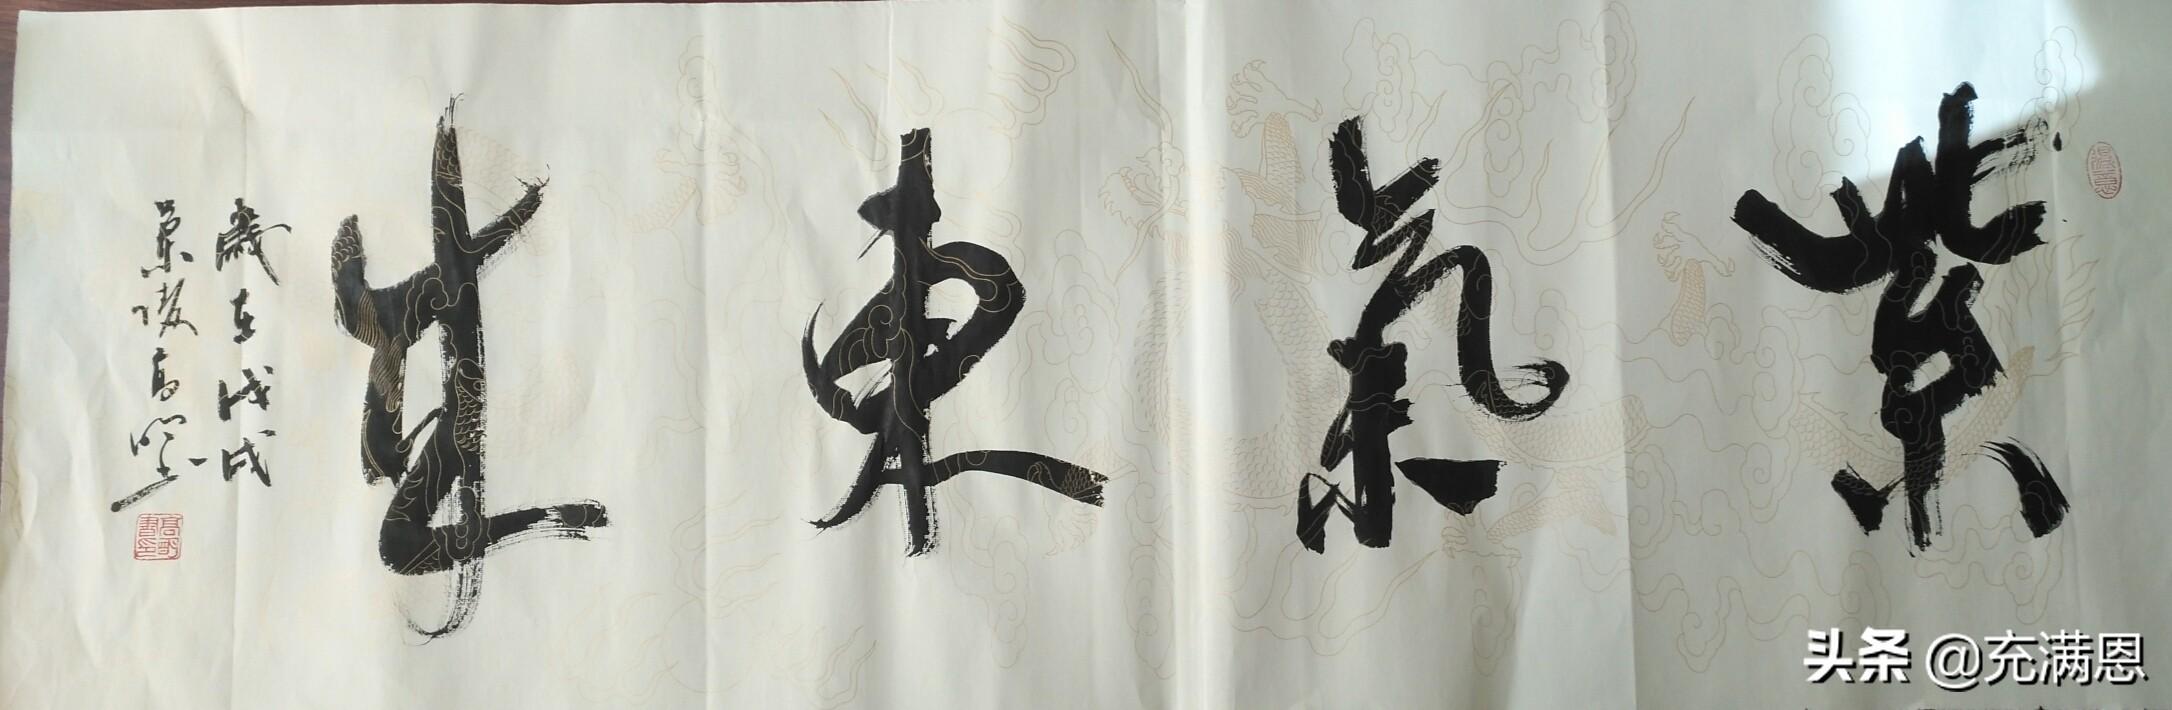 紫氣東來
歲在戊戌
高
头条 @充满恩